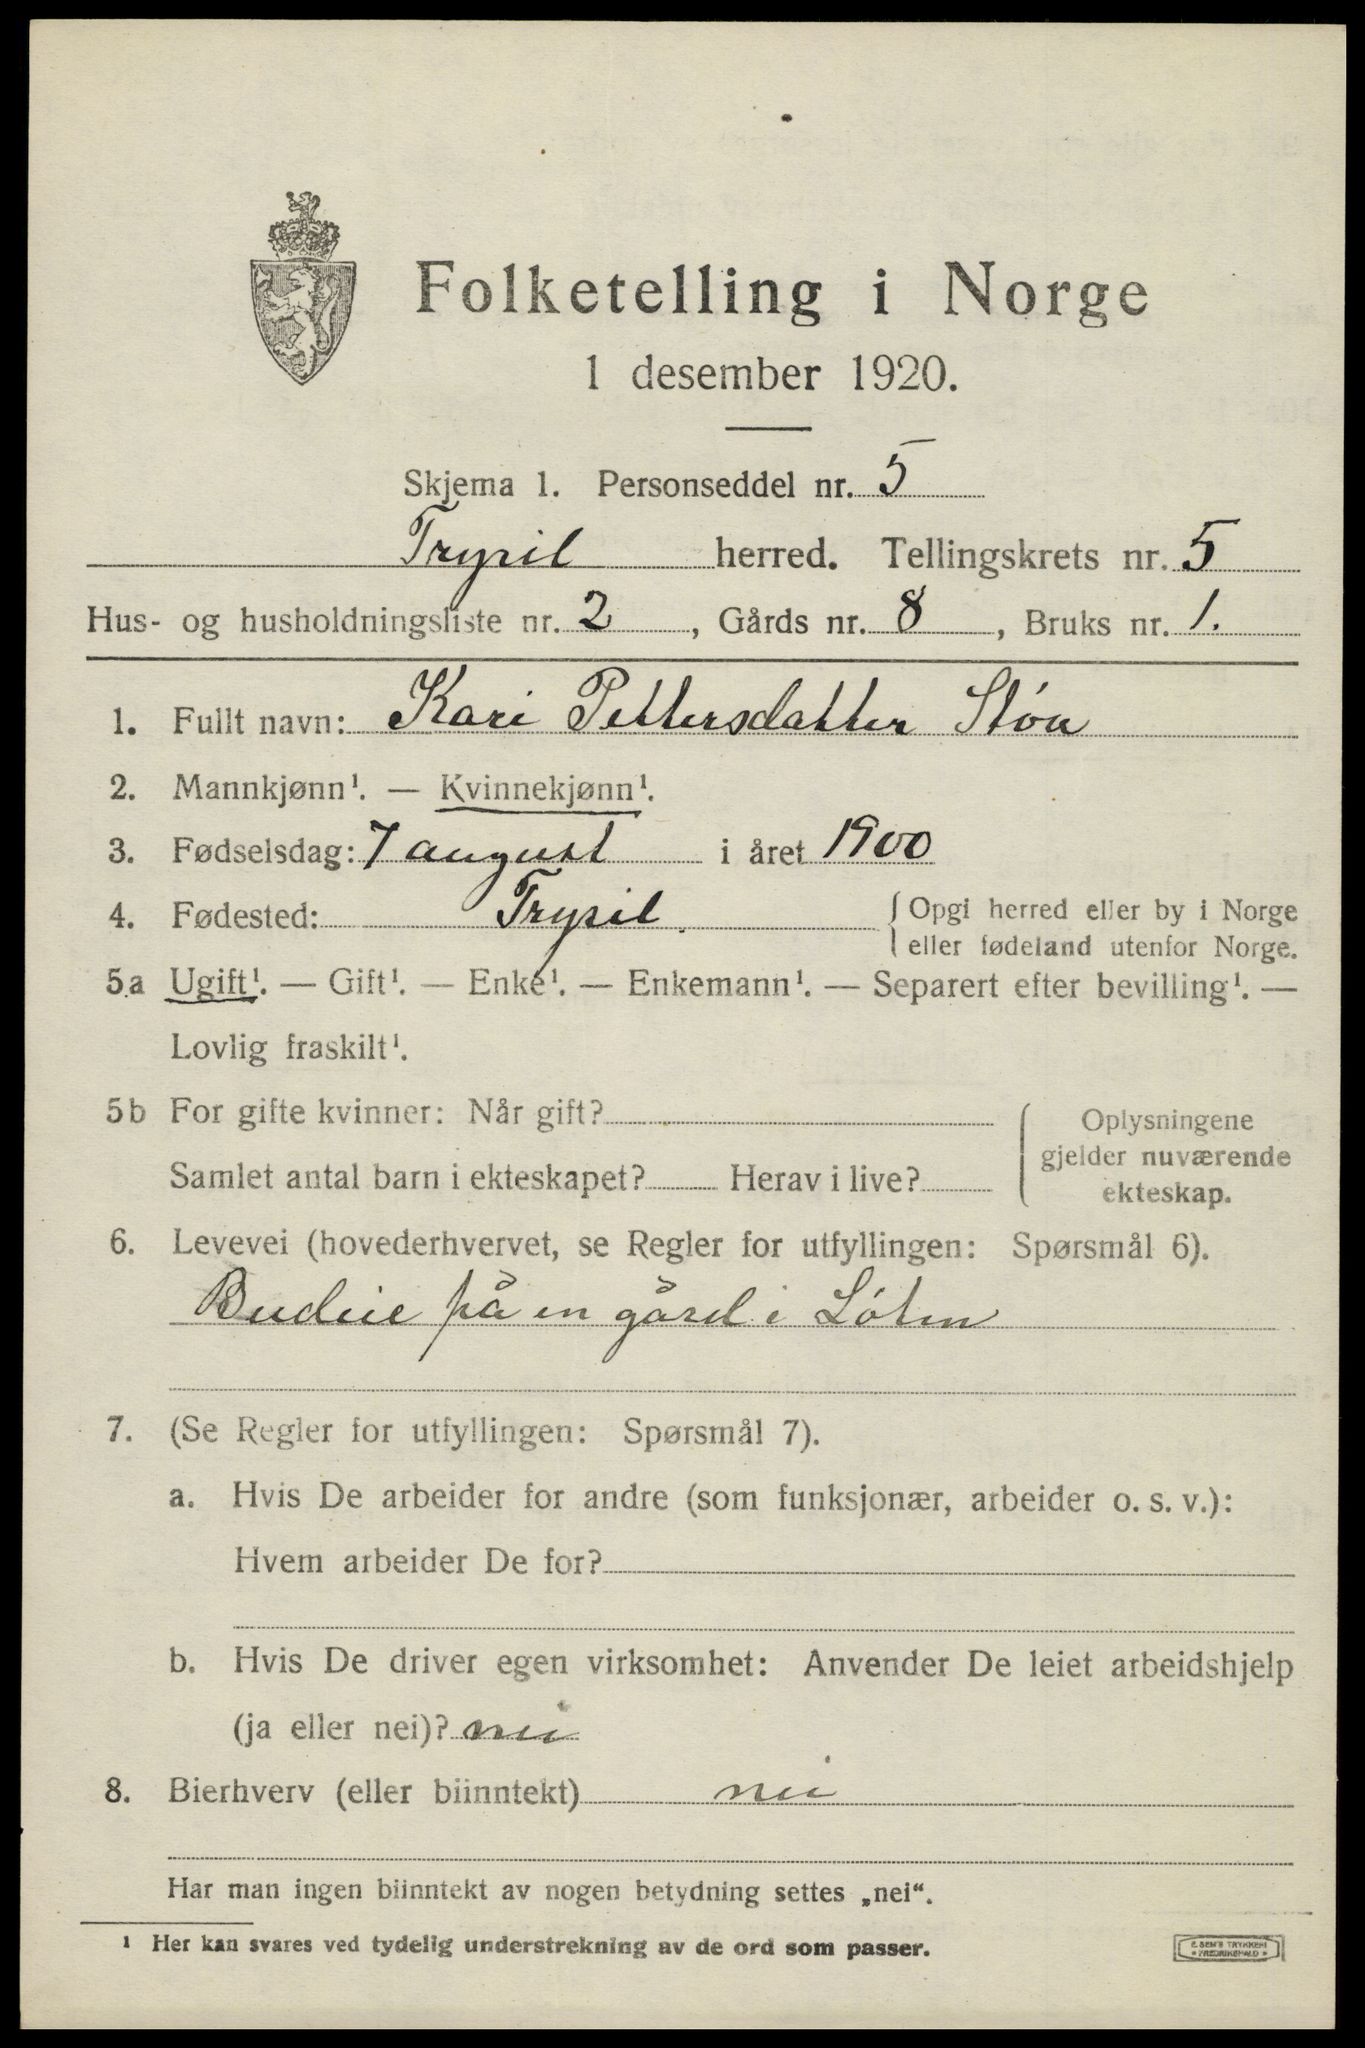 Folketelling i Norge
1 desember 1920.
Skjema 1. Personseddel nr. 5
Trysil herred. Tellingskrets nr. 5
Hus- og husholdningsliste nr. 2, Gårds nr. 8, Bruks nr. 1.
1. Fullt navn: Kari Pettersdatter Støa
2. Mannkjønn¹. — Kvinnekjønn¹.
3. Fødselsdag: 7 august i året 1900
4. Fødested: Trysil. { Opgi herred eller by i Norge
eller fødeland utenfor Norge.
5a Ugift¹. — Gift¹. — Enke¹. — Enkemann¹. — Separert efter bevilling¹. —
Lovlig fraskilt¹.
5b For gifte kvinner: Når gift?
Samlet antal barn i ekteskapet? Herav i live?
Oplysningene
gjelder nuværende
ekteskap.
6. Levevei (hovederhvervet, se Regler for utfyllingen: Spørsmål 6).
Budeie på en gård i Løten
7. (Se Regler for utfyllingen: Spørsmål 7).
a. Hvis De arbeider for andre (som funksjonær, arbeider o. s. v.):
Hvem arbeider De for?
b. Hvis De driver egen virksomhet: Anvender De leiet arbeidshjelp
(ja eller nei)? nei
8. Bierhverv (eller biinntekt) nei
Har man ingen biinntekt av nogen betydning settes „nei“.
¹ Her kan svares ved tydelig understrekning av de ord som passer.
E. SEM'S TRYKKERI
FREDRIKSHALD